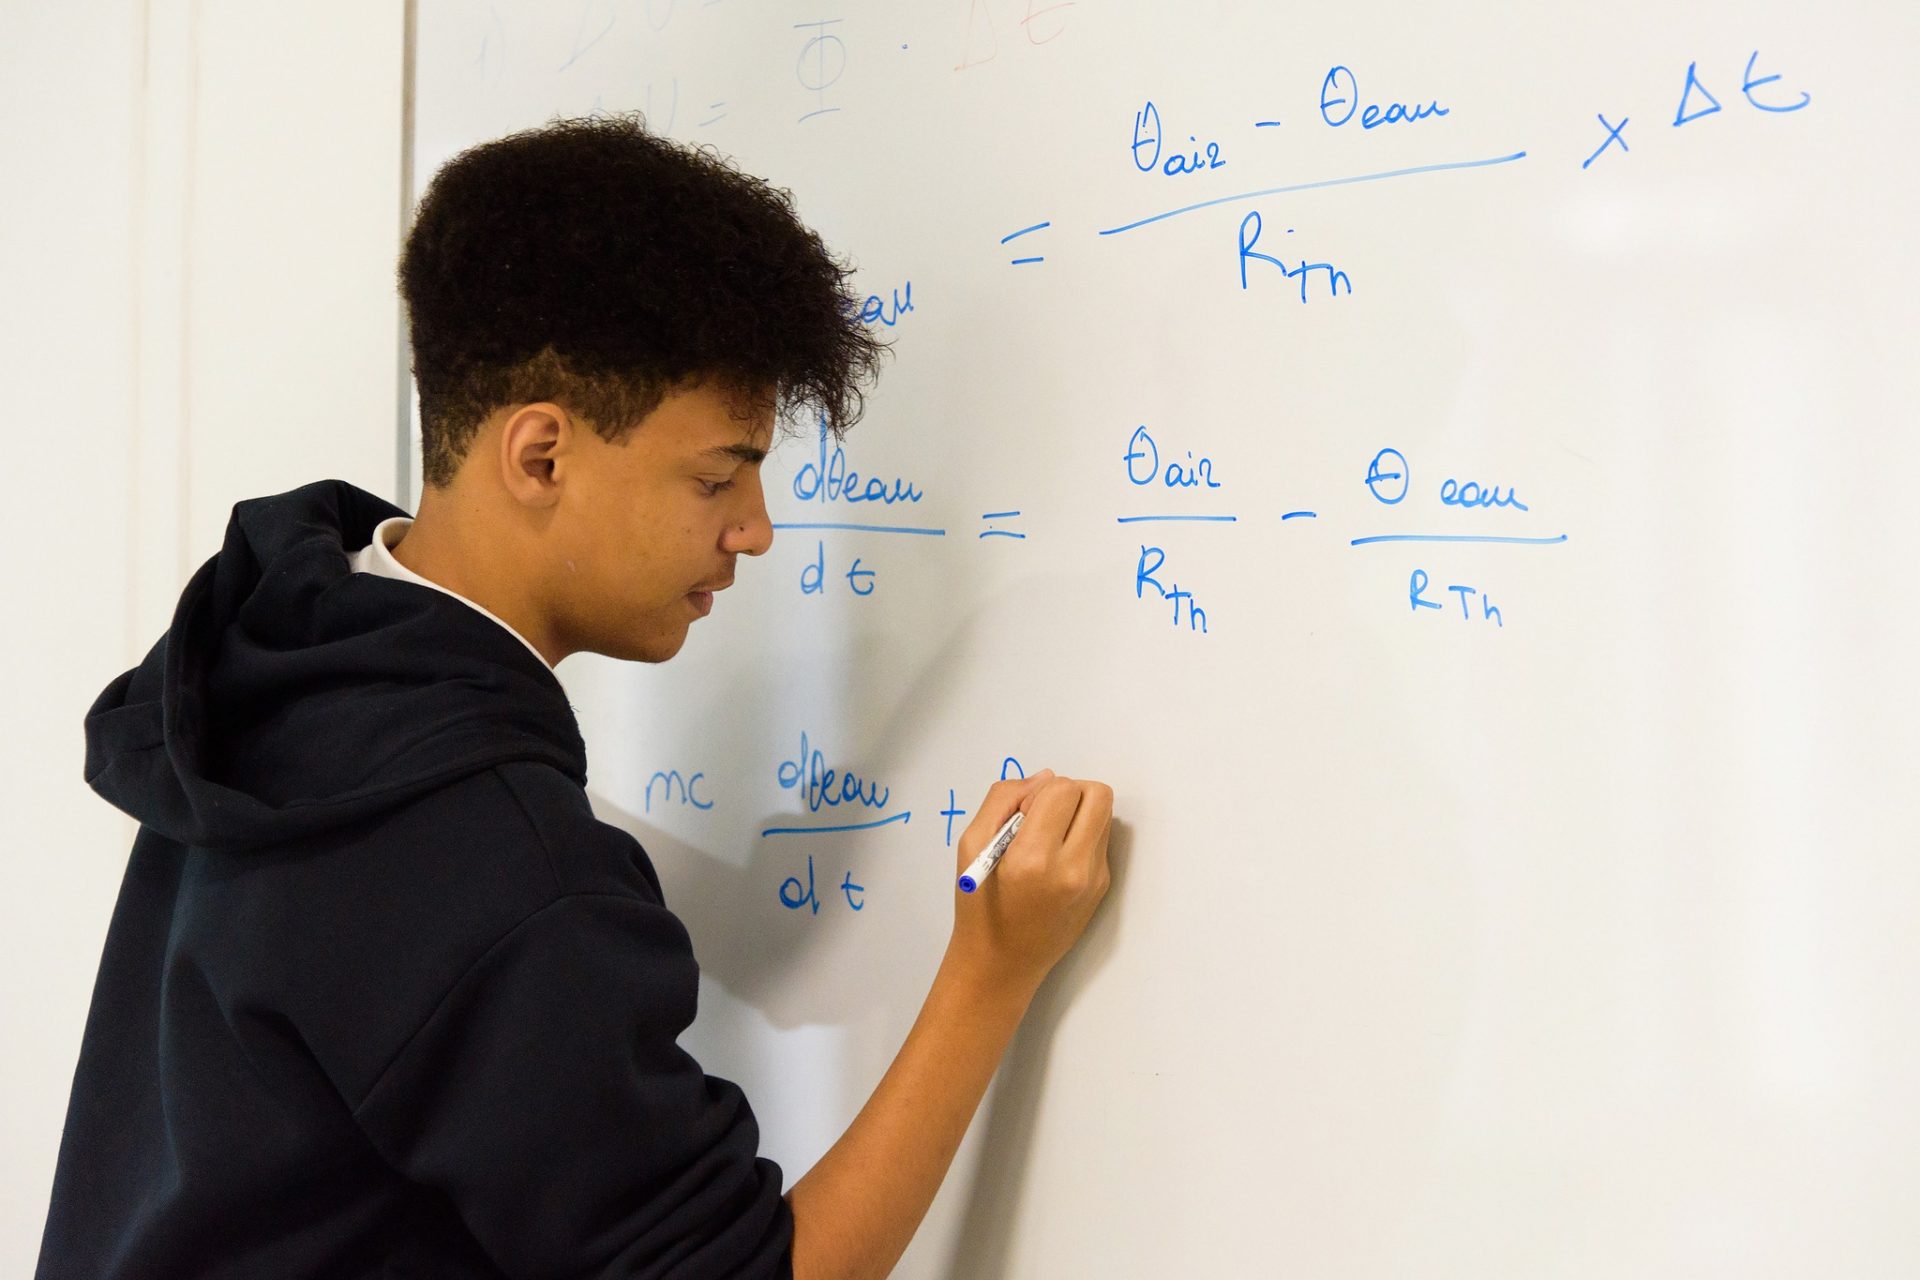 ΔU = Φ . Δt
U =
eau = (θair - θeau) / RTh × Δt
dθeau / dt = θair / RTh - θeau / RTh
mc dθeau / dt +